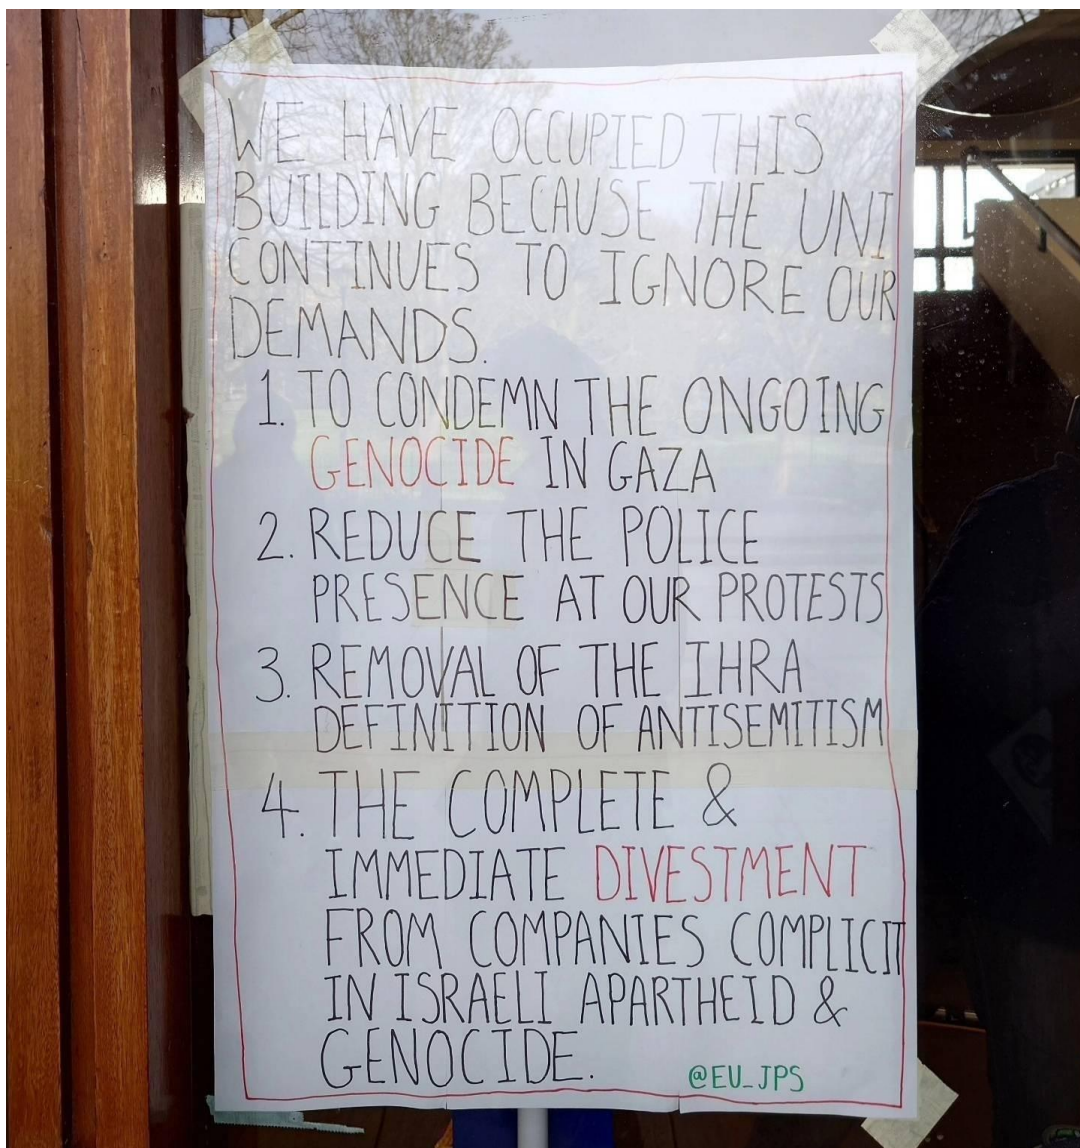 WE HAVE OCCUPIED THIS
BUILDING BECAUSE THE UNI
CONTINUES TO IGNORE OUR
DEMANDS.
1. TO CONDEMN THE ONGOING
GENOCIDE IN GAZA
2. REDUCE THE POLICE
PRESENCE AT OUR PROTESTS
3. REMOVAL OF THE IHRA
DEFINITION OF ANTISEMITISM
4. THE COMPLETE &
IMMEDIATE DIVESTMENT
FROM COMPANIES COMPLICIT
IN ISRAELI APARTHEID &
GENOCIDE.
@EU_JPS